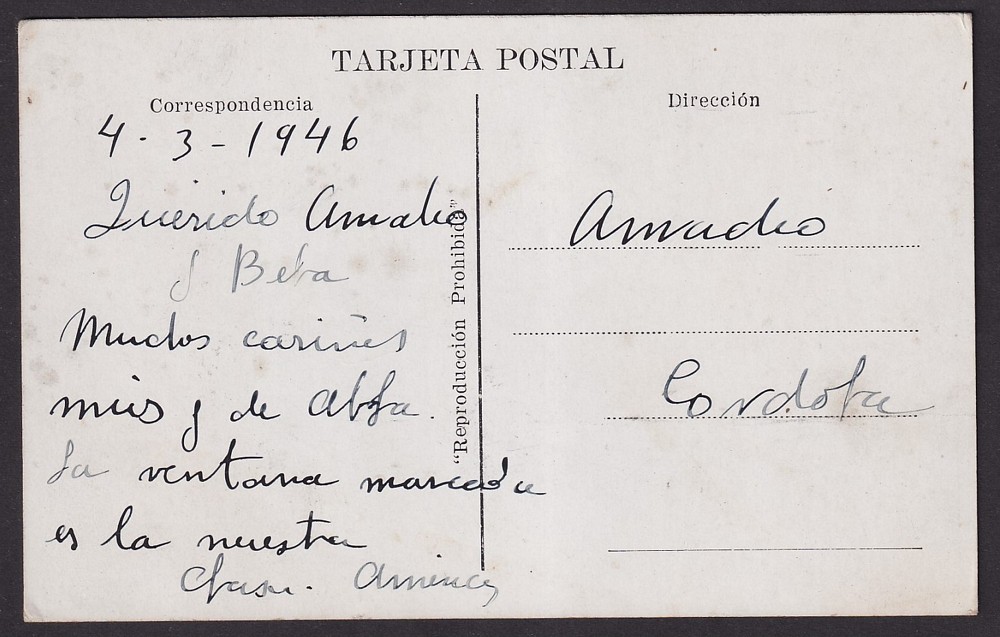 TARJETA POSTAL
Correspondencia
4-3-1946
Querido Amadeo
y Beba
Muchos cariños
mios y de
La ventana marcada
es la nuestra
"Reproducción Prohibida"
Dirección
Amadeo
Cordoba